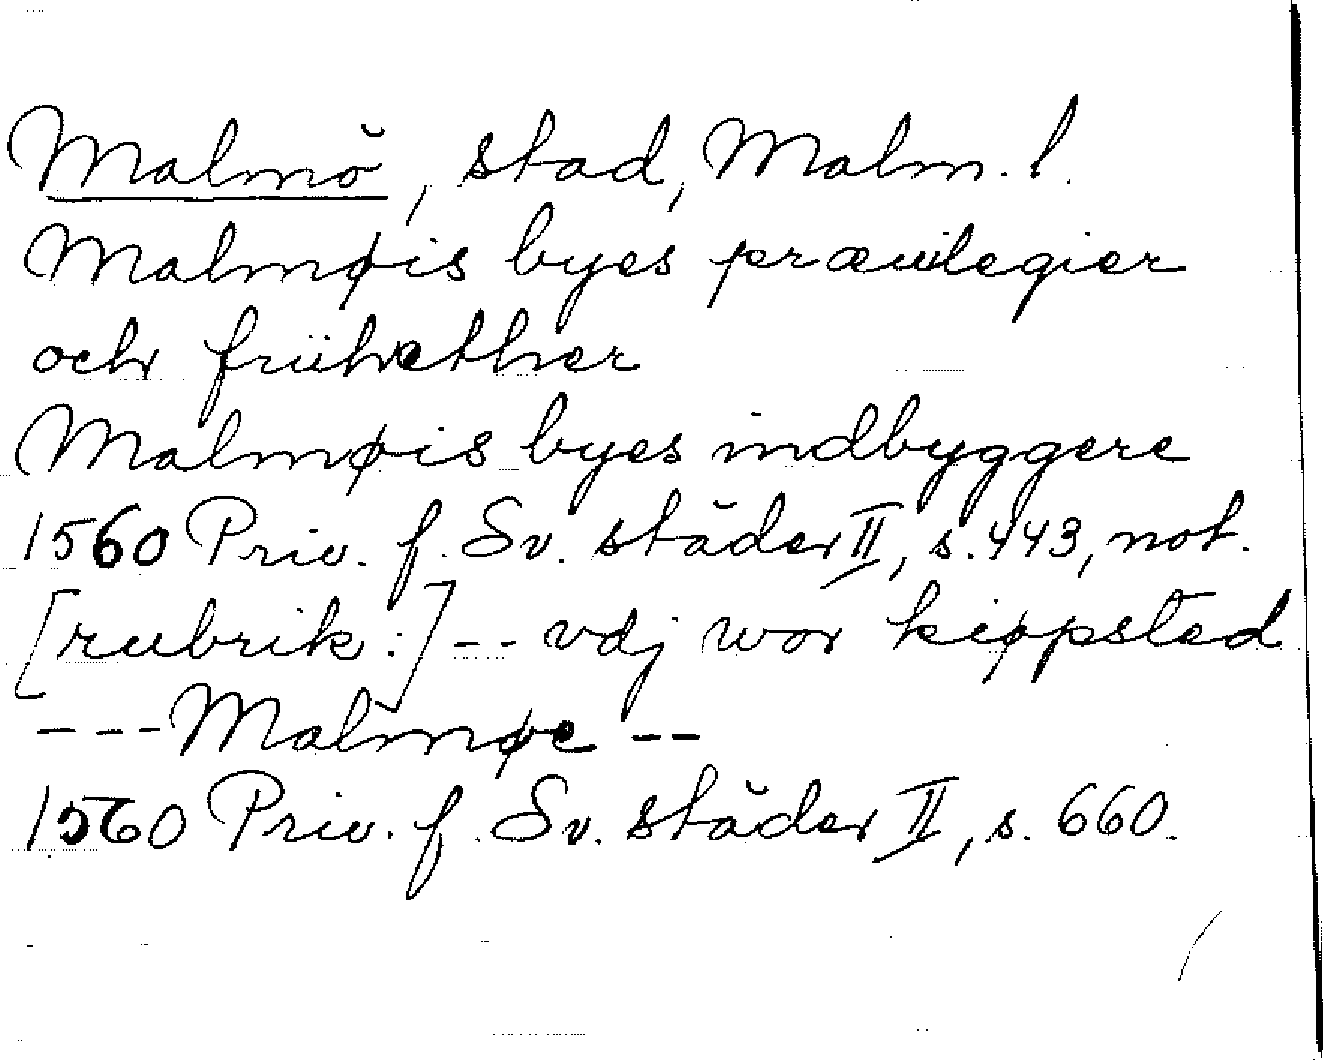 Malmö, stad, Malm. l.
Malmøis byes præuilegier
och friihether
Malmøis byes indbyggere
1560 Priv. f. Sv. städer II, s. 443, not.
[rubrik:] -- vdj wor kiøpsted
--- Malmøe --
1560 Priv. f. Sv. städer II, s. 660.